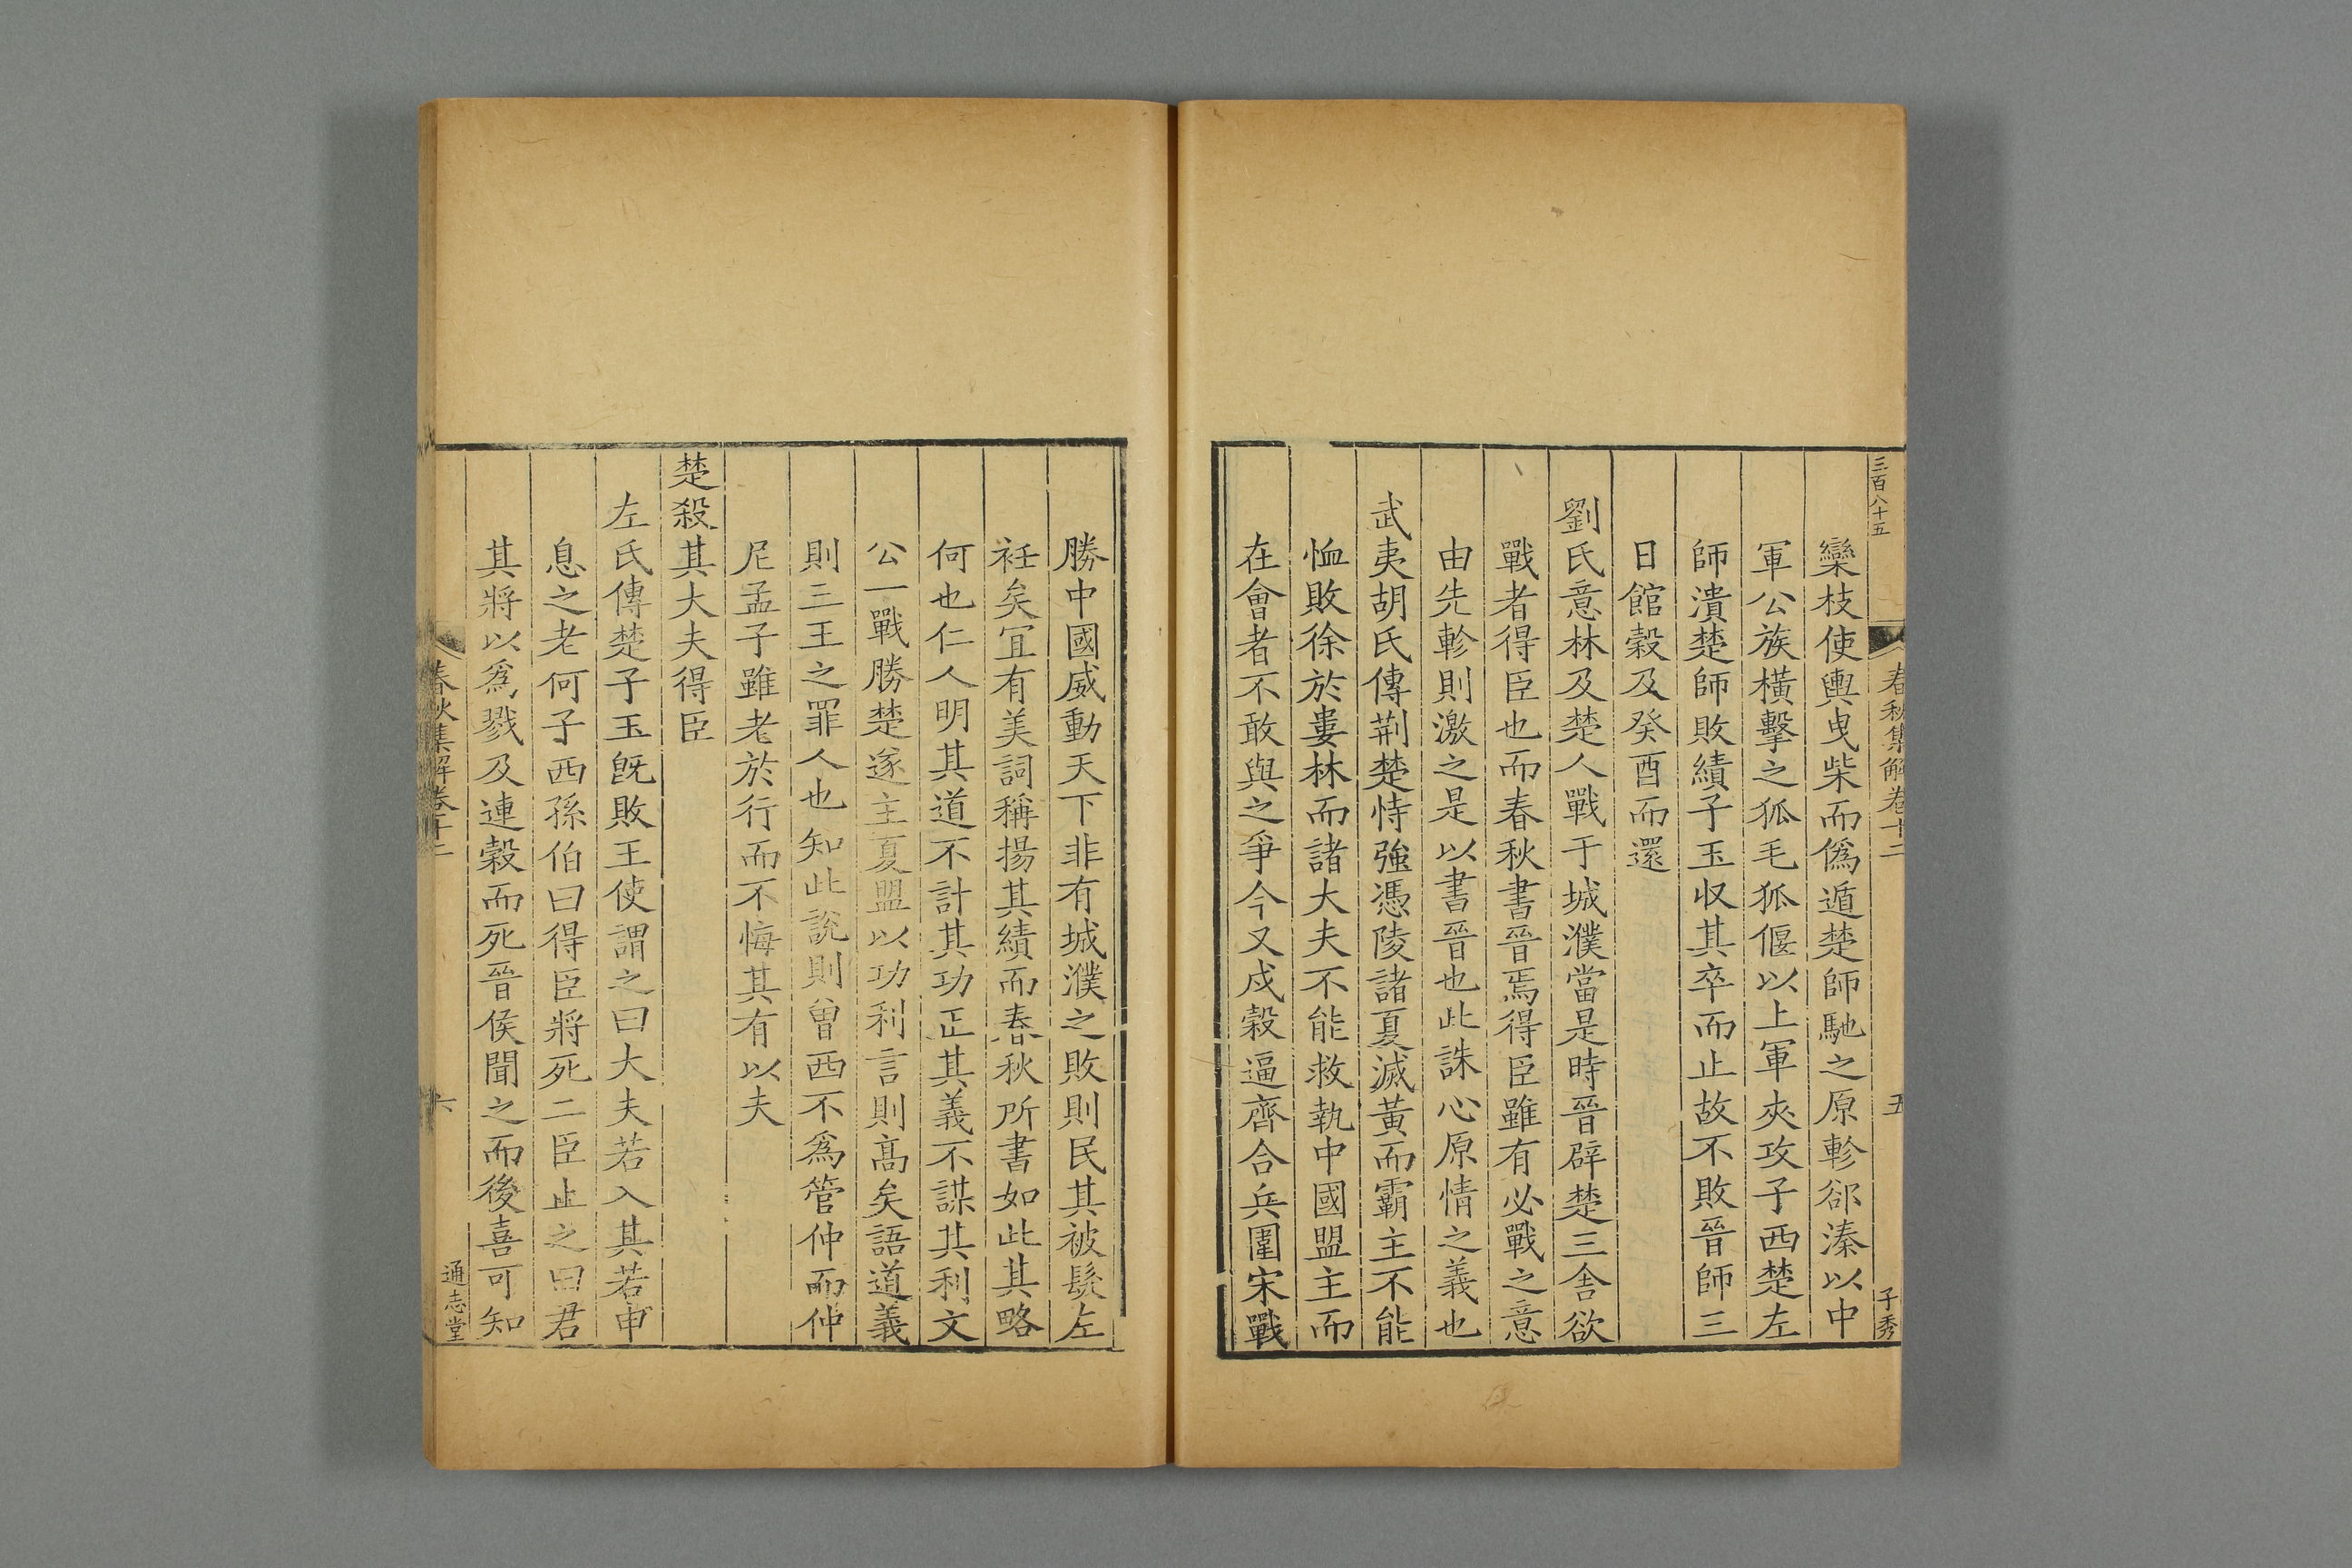 三百八十五
春秋集解卷十二
五
子秀
欒枝使輿曳柴而僞遁楚師馳之原軫郤溱以中
軍公族橫擊之狐毛狐偃以上軍夾攻子西楚左
師潰楚師敗績子玉收其卒而止故不敗晉師三
日館穀及癸酉而還
劉氏意林及楚人戰于城濮當是時晉辟楚三舍欲
戰者得臣也而春秋書晉焉得臣雖有必戰之意
由先軫則激之是以書晉也此誅心原情之義也
武夷胡氏傳荆楚恃強憑陵諸夏滅黃而霸主不能
恤敗徐於婁林而諸大夫不能救執中國盟主而
在會者不敢與之爭今又戍穀逼齊合兵圍宋戰
勝中國威動天下非有城濮之敗則民其被髮左
衽矣宜有美詞稱揚其績而春秋所書如此其略
何也仁人明其道不計其功正其義不謀其利文
公一戰勝楚遂主夏盟以功利言則髙矣語道義
則三王之罪人也知此說則曾西不爲管仲而仲
尼孟子雖老於行而不悔其有以夫
楚殺其大夫得臣
左氏傳楚子玉旣敗王使謂之曰大夫若入其若申
息之老何子西孫伯曰得臣將死二臣止之曰君
其將以爲戮及連穀而死晉侯聞之而後喜可知
春秋集解卷十二
六
通志堂